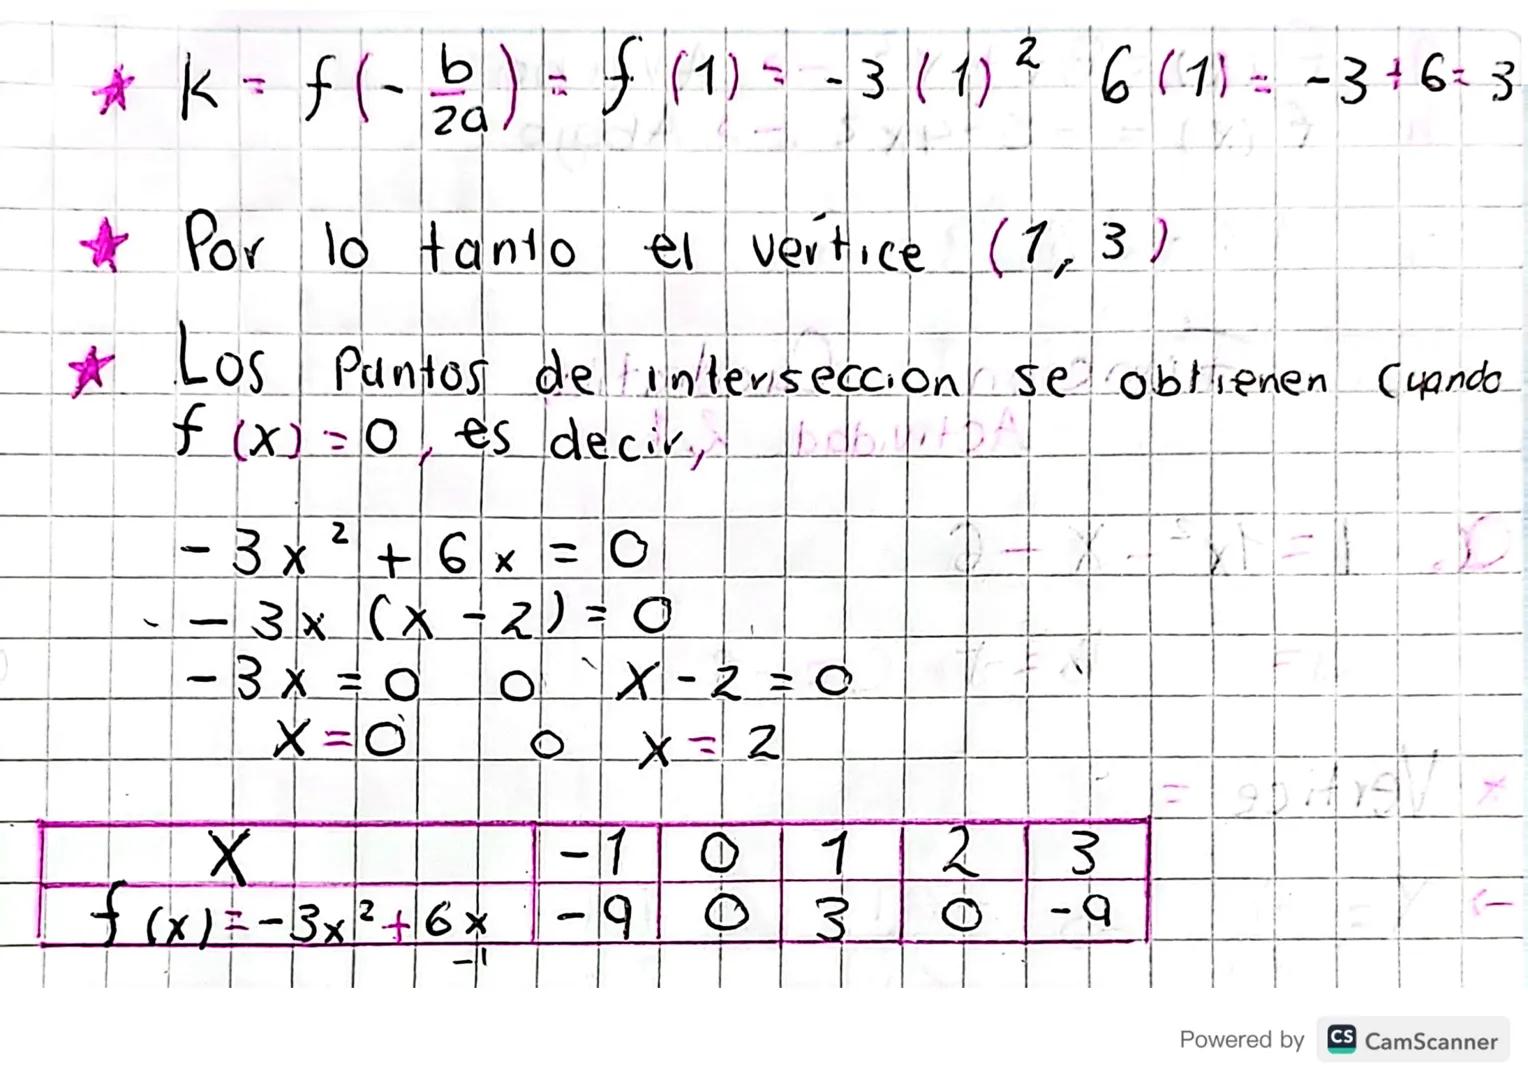 ★ K = f(-b/2a) = f (1) = -3 (1)² 6 (1) = -3 + 6 = 3
★ Por lo tanto el vértice (1, 3)
★ Los Puntos de interseccion se obtienen cuando
f (x) = 0, es decir,
- 3x² + 6x = 0
- 3x (x - 2) = 0
- 3x = 0 o x - 2 = 0
x = 0 o x = 2
X -1 0 1 2 3
f (x) = -3x² + 6x -9 0 3 0 -9
-1
Powered by CS CamScanner